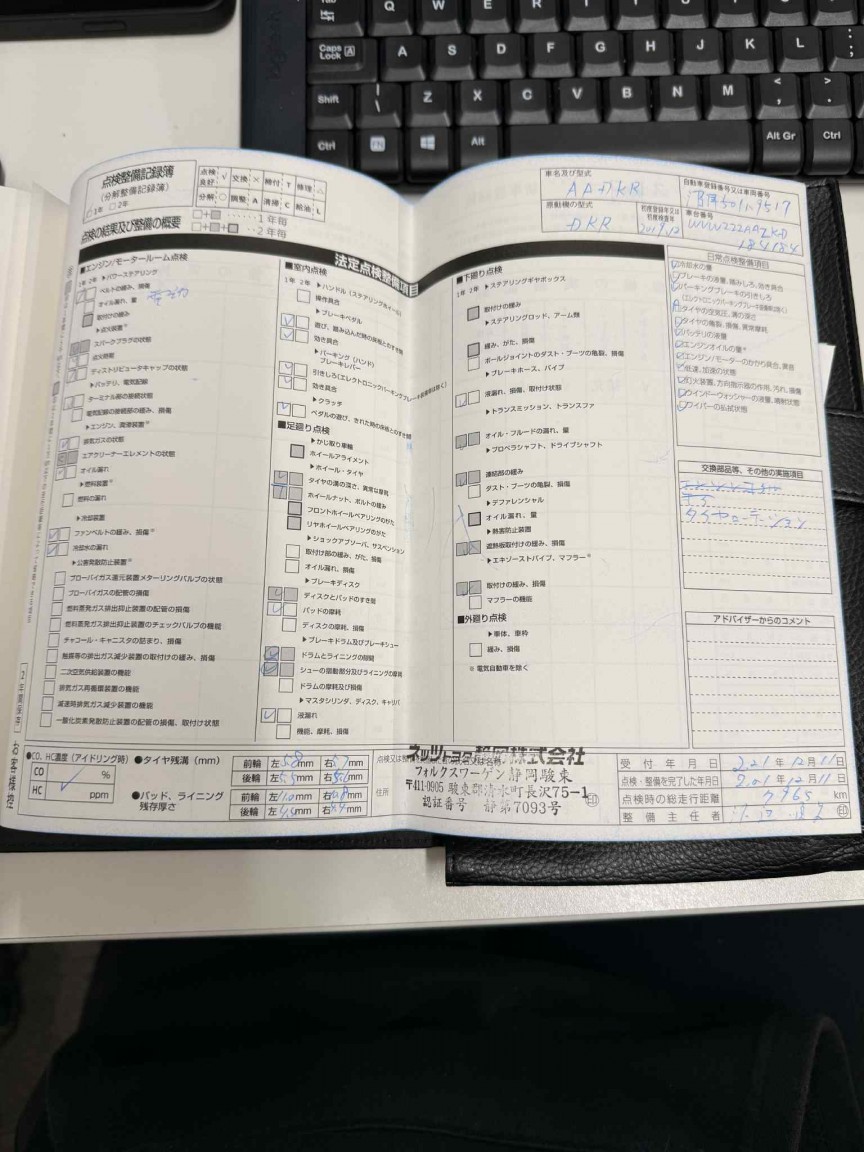 Q W E R T Y U I O P
Caps Lock A
A S D F G H J K L
Shift
Z X C V B N M
Ctrl
Fn
Alt
Alt Gr
Ctrl
点検整備記録簿
(分解整備記録簿)
□1年 □2年
点検良好 √ 交換 × 締付 T 修理 △
分解 ○ 調整 A 清掃 C 給油 L
点検の結果及び整備の概要
・・・・・・1年毎
・・2年毎
車名及び型式
AADKR
自動車登録番号又は車両番号
501
9517
原動機の型式
DKR
初度登録年又は初度検査年
2019.12
車台番号
184184
法定点検整備項目
■エンジン/モータールーム点検
1年 2年 ▶パワーステアリング
ベルトの緩み、損傷
オイル漏れ、量
取付けの緩み
▶点火装置※
スパークプラグの状態
点火時期
ディストリビュータキャップの状態
▶バッテリ、電気配線
ターミナル部の接続状態
電気配線の接続部の緩み、損傷
▶エンジン、潤滑装置※
排気ガスの状態
エアクリーナーエレメントの状態
オイル漏れ
▶燃料装置※
燃料の漏れ
▶冷却装置
ファンベルトの緩み、損傷※
冷却水の漏れ
▶公害発散防止装置※
ブローバイガス還元装置メターリングバルブの状態
ブローバイガスの配管の損傷
燃料蒸発ガス排出抑止装置の配管の損傷
燃料蒸発ガス排出抑止装置のチェックバルブの機能
チャコール・キャニスタの詰まり、損傷
触媒等の排出ガス減少装置の取付けの緩み、損傷
二次空気供給装置の機能
排気ガス再循環装置の機能
減速時排気ガス減少装置の機能
一酸化炭素発散防止装置の配管の損傷、取付け状態
■室内点検
1年 2年 ▶ハンドル(ステアリングホイール)
操作具合
▶ブレーキペダル
遊び、踏み込んだ時の床板とのすき間
効き具合
▶パーキング(ハンド)ブレーキレバー
引きしろ(エレクトロニックパーキングブレーキ装着車は除く)
効き具合
▶クラッチ
ペダルの遊び、きれた時の床板とのすき間
■足廻り点検
▶かじ取り車輪
ホイールアライメント
▶ホイール・タイヤ
タイヤの溝の深さ、異常な摩耗
ホイールナット、ボルトの緩み
フロントホイールベアリングのがた
リヤホイールベアリングのがた
▶ショックアブソーバ、サスペンション
取付け部の緩み、がた、損傷
オイル漏れ、損傷
▶ブレーキディスク
ディスクとパッドのすき間
パッドの摩耗
ディスクの摩耗、損傷
▶ブレーキドラム及びブレーキシュー
ドラムとライニングの隙間
シューの摺動部分及びライニングの摩耗
ドラムの摩耗及び損傷
▶マスタシリンダ、ディスク、キャリパ
液漏れ
機能、摩耗、損傷
■下廻り点検
1年 2年 ▶ステアリングギヤボックス
取付けの緩み
▶ステアリングロッド、アーム類
緩み、がた、損傷
ボールジョイントのダスト・ブーツの亀裂、損傷
▶ブレーキホース、パイプ
液漏れ、損傷、取付け状態
▶トランスミッション、トランスファ
オイル・フルードの漏れ、量
▶プロペラシャフト、ドライブシャフト
連結部の緩み
ダスト・ブーツの亀裂、損傷
▶デファレンシャル
オイル漏れ、量
▶熱害防止装置
遮熱板取付けの緩み、損傷
▶エキゾーストパイプ、マフラー※
取付けの緩み、損傷
マフラーの機能
■外廻り点検
▶車体、車枠
緩み、損傷
※ 電気自動車を除く
日常点検整備項目
冷却水の量
ブレーキの液量、踏みしろ、効き具合
パーキングブレーキの引きしろ
(エレクトロニックパーキングブレーキ装着車は除く)
タイヤの空気圧、溝の深さ
タイヤの亀裂、損傷、異常摩耗
バッテリの液量
エンジンオイルの量※
エンジン/モーターのかかり具合、異音
低速、加速の状態
灯火装置、方向指示器の作用、汚れ、損傷
ウインドーウォッシャーの液量、噴射状態
ワイパーの払拭状態
交換部品等、その他の実施項目
タイヤローテーション
アドバイザーからのコメント
2年間保存
お客様控
●CO、HC濃度(アイドリング時)
CO %
HC ppm
●タイヤ残溝(mm)
前輪 左5.8mm 右5.7mm
後輪 左5.5mm 右5.6mm
●パッド、ライニング残存厚さ
前輪 左11.0mm
後輪
住所
ネッツトヨタ静岡株式会社
フォルクスワーゲン静岡駿東
〒411-0905 駿東郡清水町長沢75-1
認証番号 静第7093号
受付年月日 2021年12月11日
点検・整備を完了した年月日 2021年12月11日
点検時の総走行距離 7965 km
整備主任者